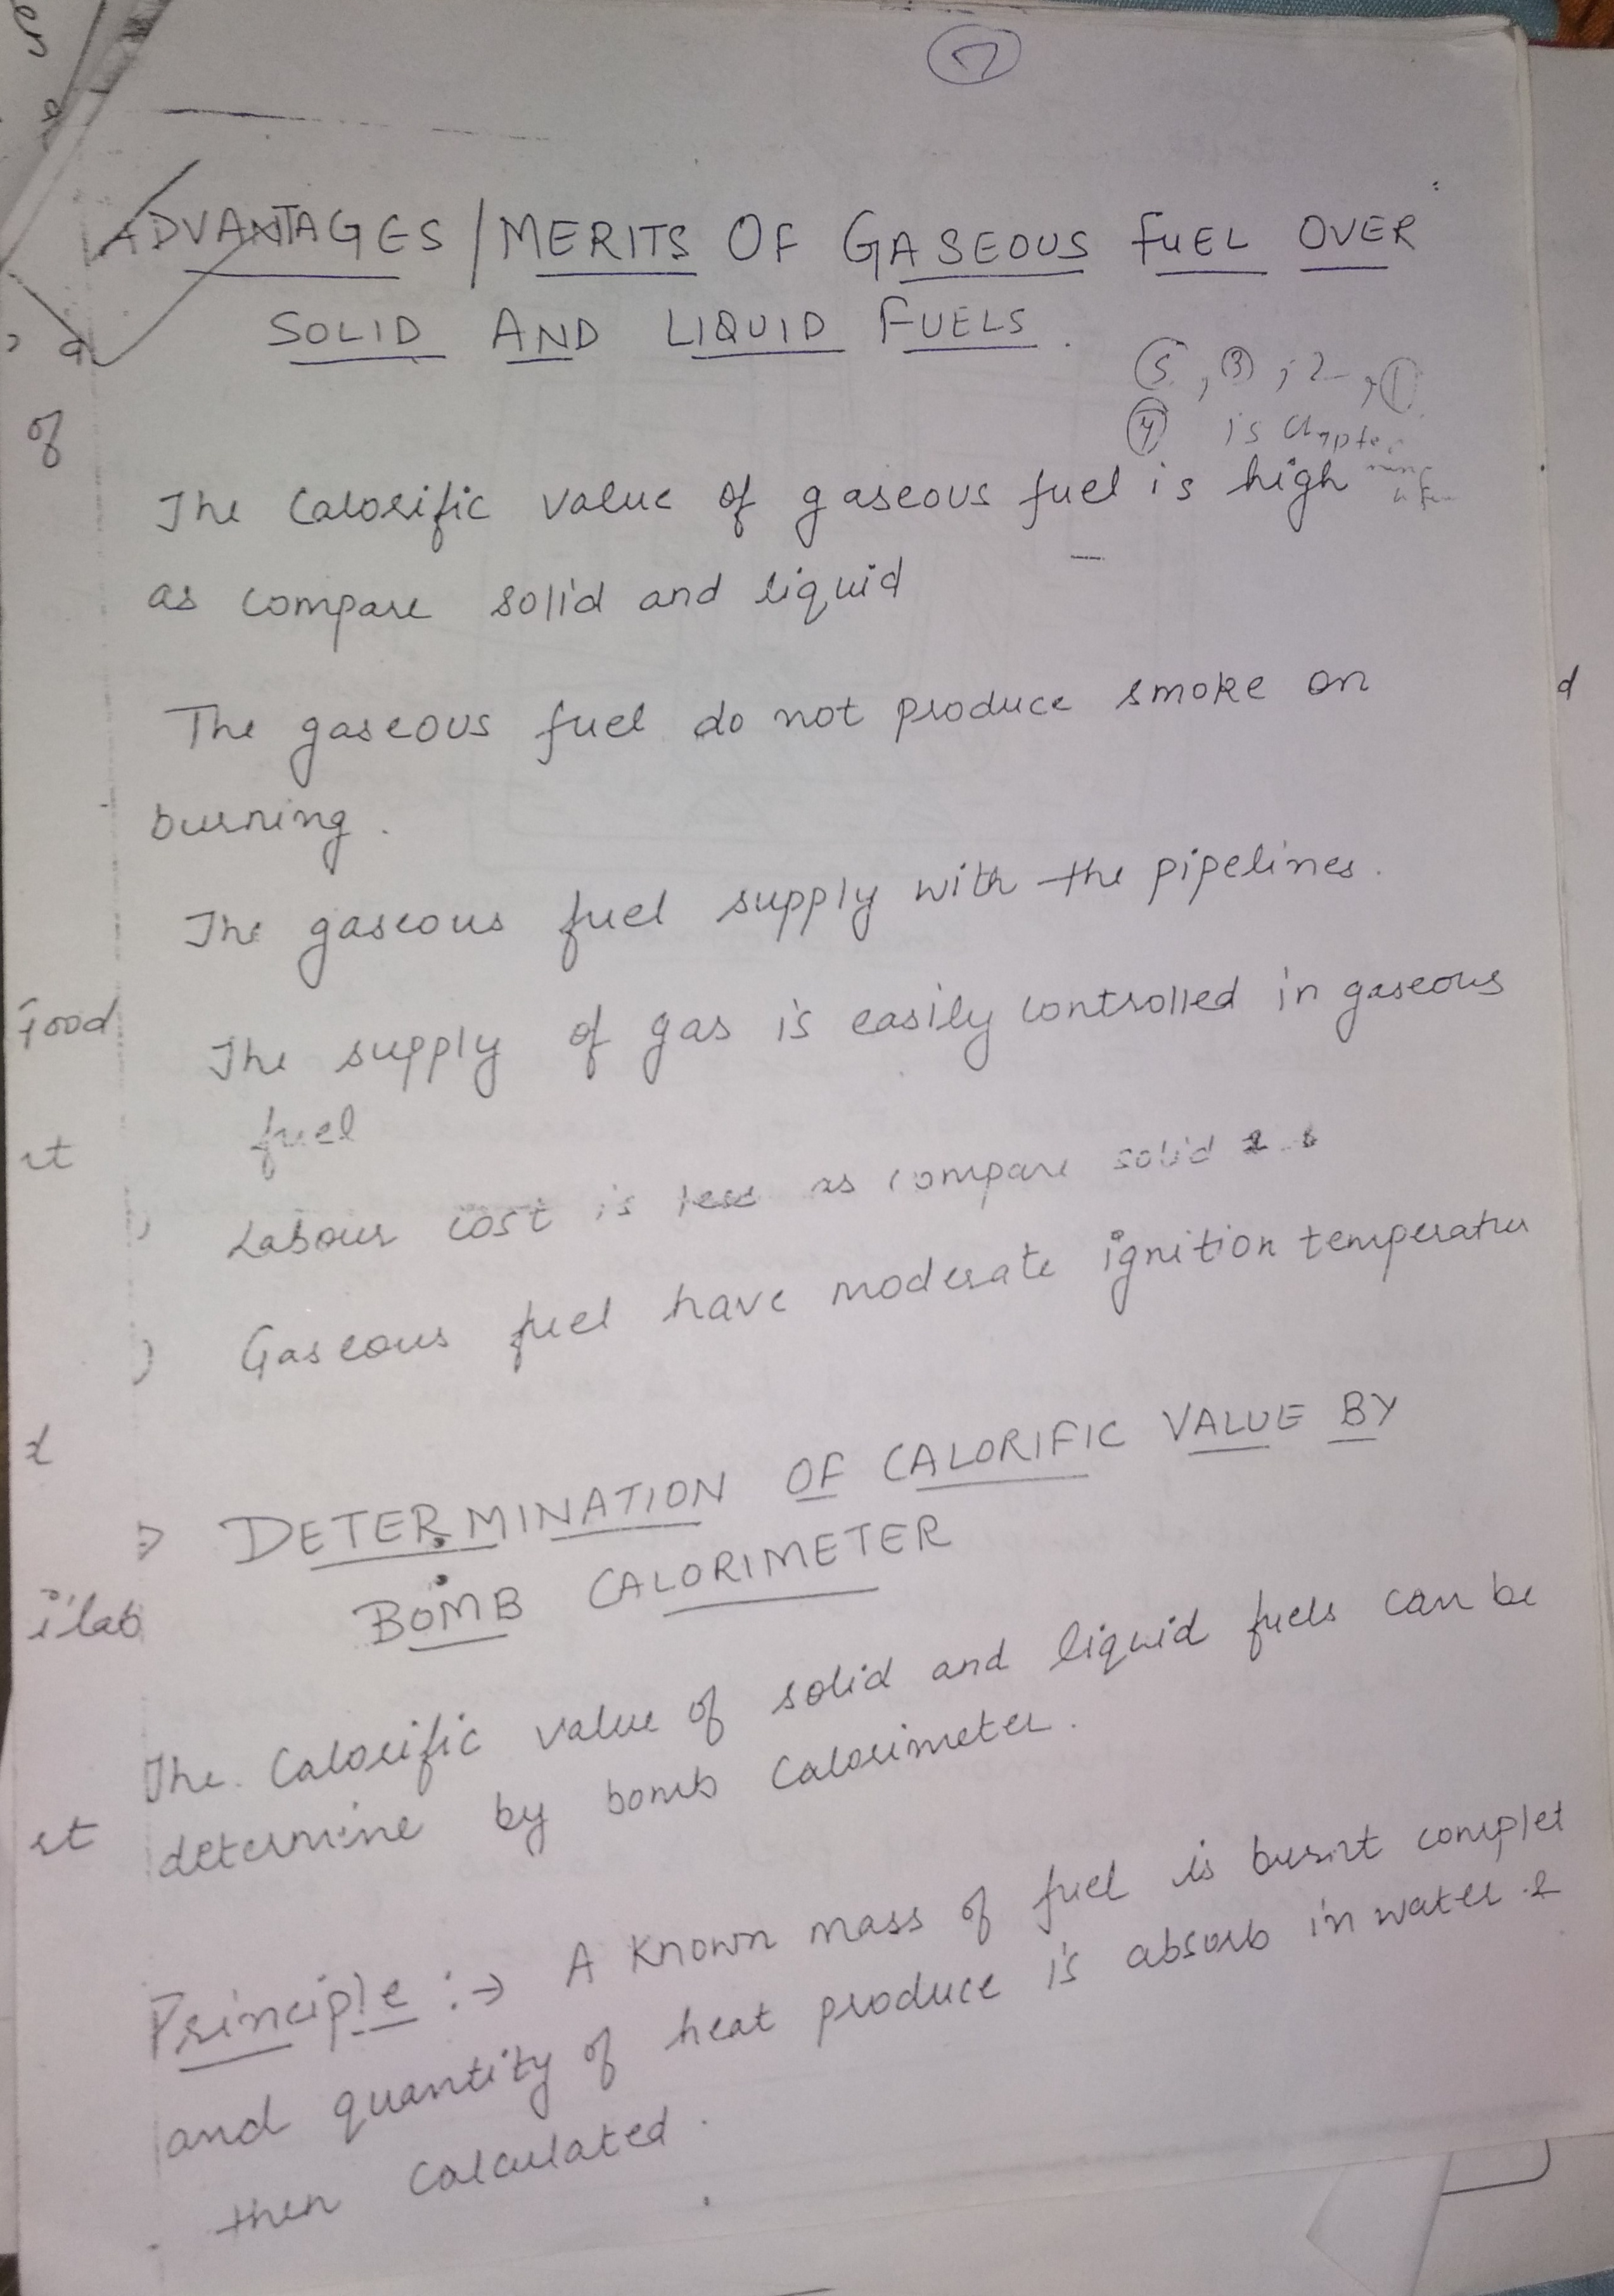 ADVANTAGES/MERITS OF GASEOUS FUEL OVER
SOLID AND LIQUID FUELS.
5, 3, 2, 1
4 is Chapter
of
The Calorific value of gaseous fuel is high
as compare solid and liquid
The gaseous fuel do not produce smoke on
d
burning.
The gaseous fuel supply with the pipelines.
Food
The supply of gas is easily controlled in gaseous
fuel
Labour cost is less as compare solid
Gaseous fuel have moderate ignition temperatur
⇒ DETERMINATION OF CALORIFIC VALUE BY
BOMB CALORIMETER
The Calorific value of solid and liquid fuels can be
determine by bomb Calorimeter.
Principle :→ A Known mass of fuel is burnt complet
and quantity of heat produce is absorb in water &
then calculated.